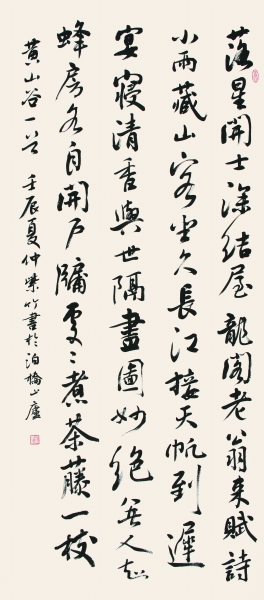 落星開士深結屋龍閣老翁來賦詩
小雨藏山客坐久長江接天帆到遲
宴寢清香與世隔畫圖妙絕無人知
蜂房各自開戶牖處々煮茶藤一枝
黃山谷一首 壬辰夏仲紫竹書於泊橋山廬